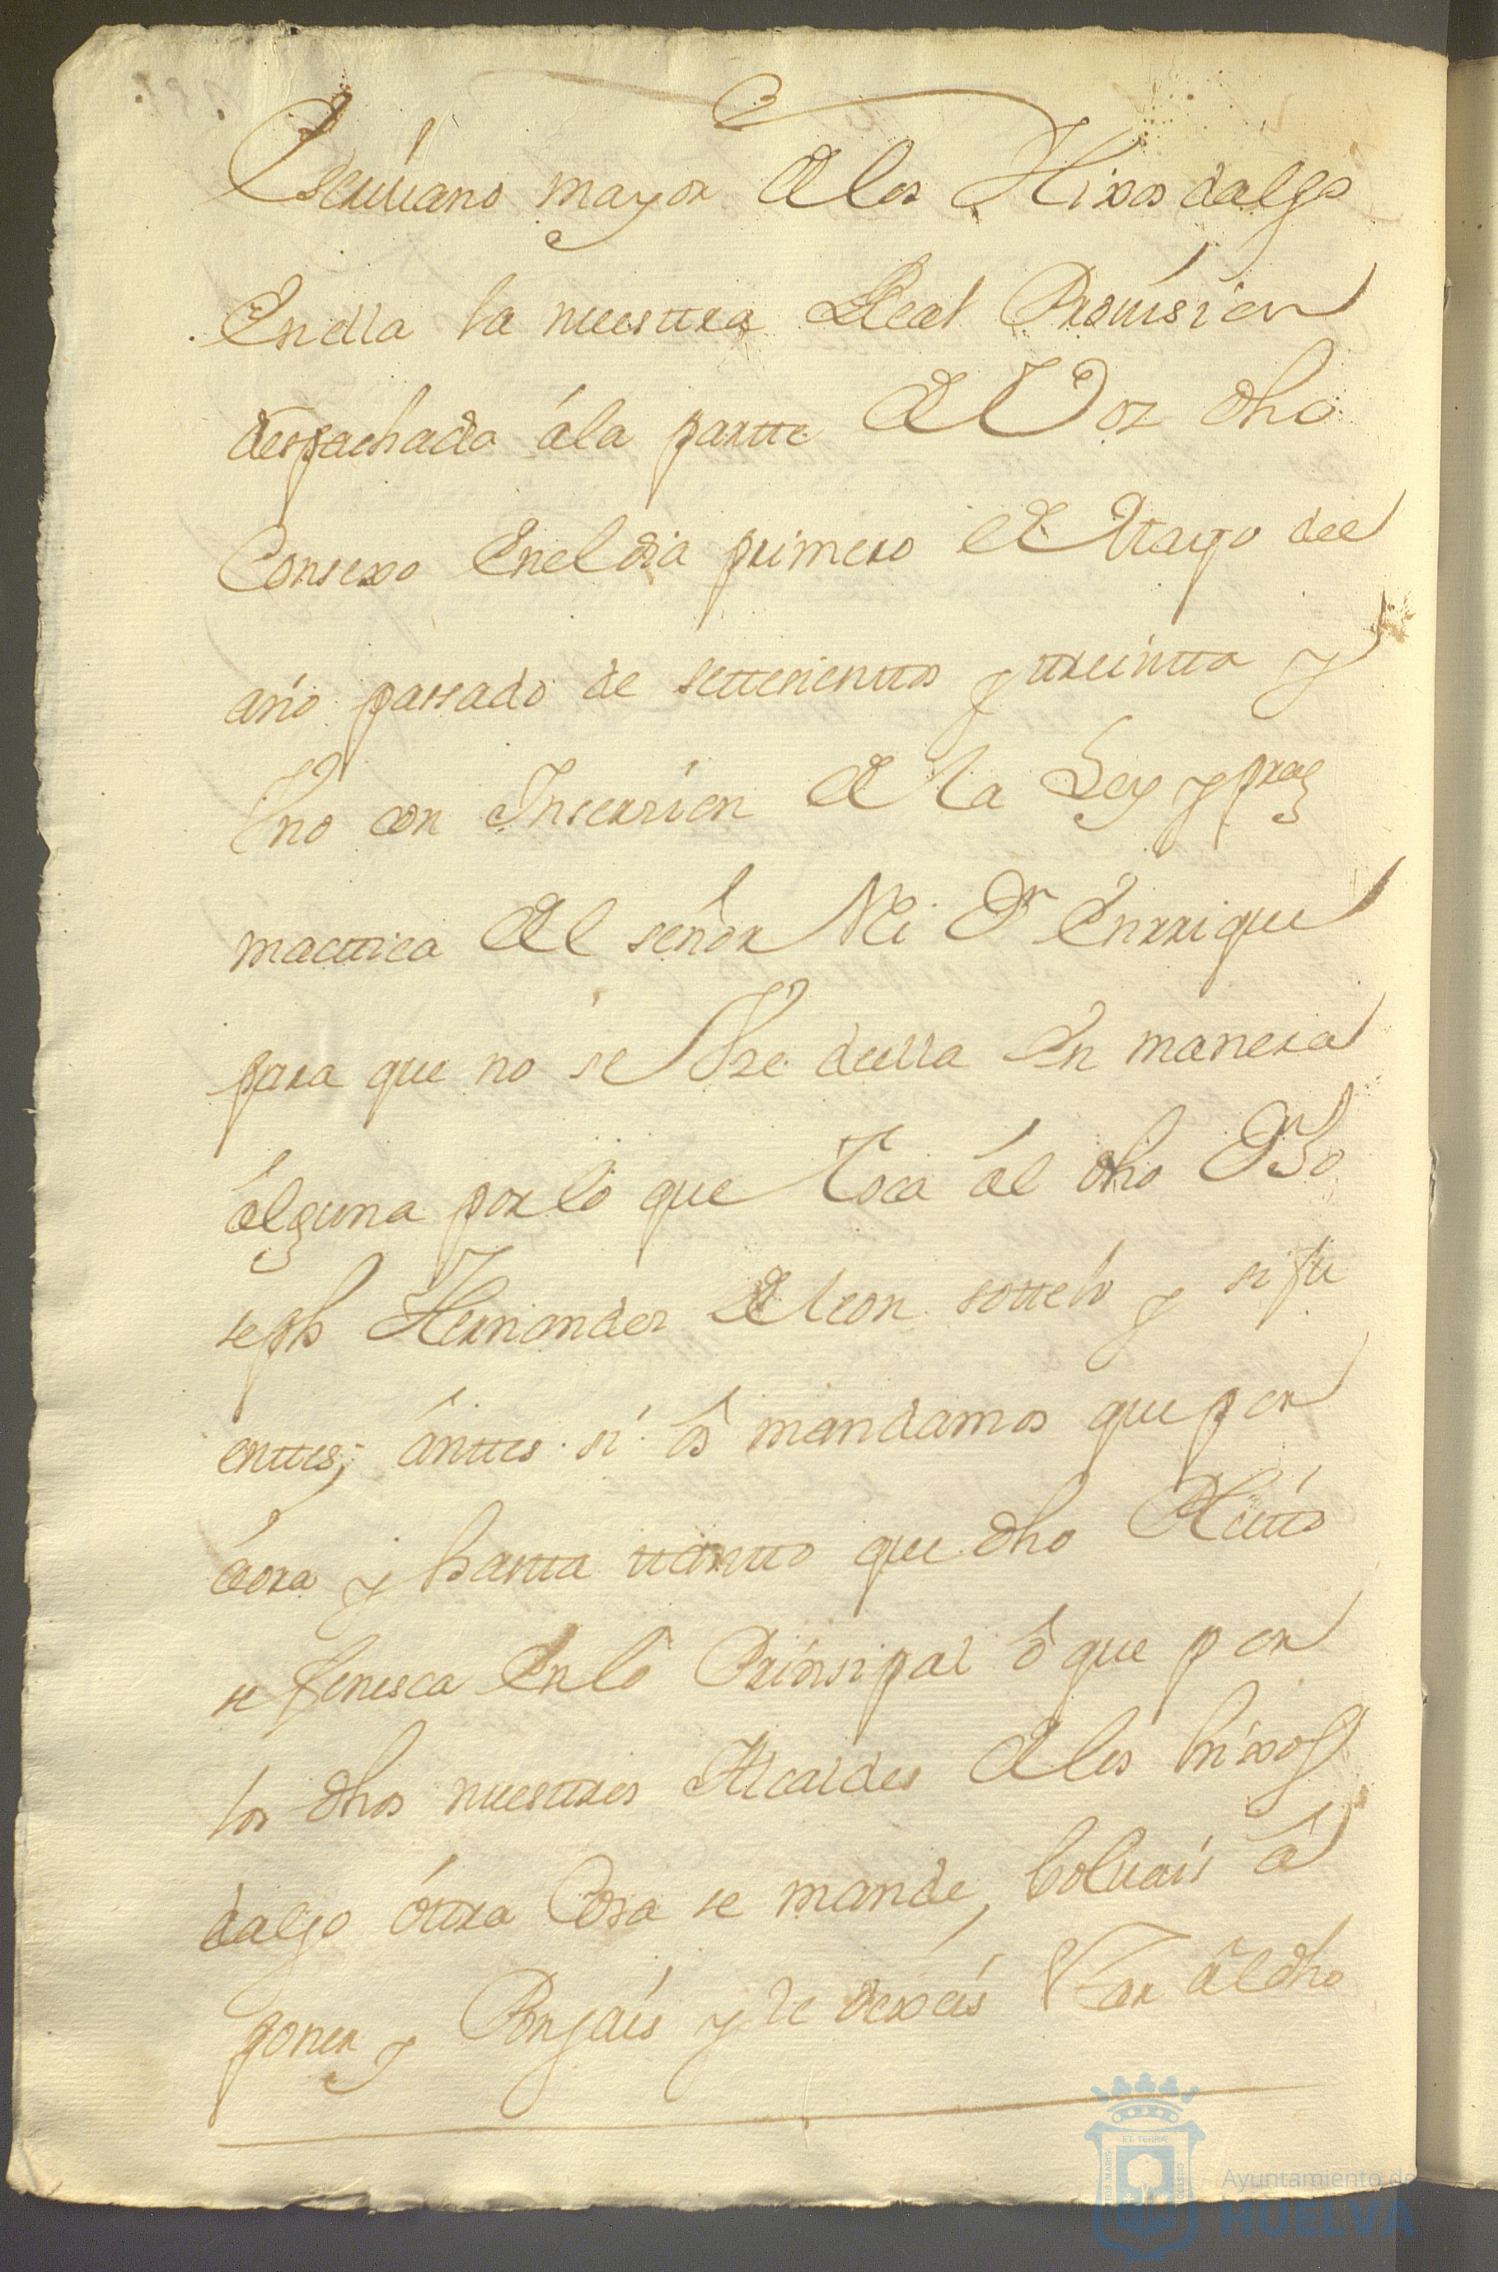 Escriuano mayor de los Hixos dalgo
En ella la nuestra Real Prouision
despachada ála partte de Vos dho
Consexo En el dia primero de Mayo del
año passado de settesienttos y ttreintta y
Vno con Inserzion de la Ley y prag
mattica del señor Rei Dn Enrrique
para que no se Vze della En manera
álguna por lo que toca ál dho Dn Jo
seph Hernandez de leon sottelo y si fu
enttes, ánttes si ôs mandamos que por
áora y hastta ttantto que dho Pleitto
se fenesca En lo Prinsipal ô que por
los dhos nuesttros Alcaldes de los hixos
dalgo óttra Cosa se mande, boluais â
poner y Pongais y le dexéis Vsar âl dho
Ayuntamiento de
HUELVA